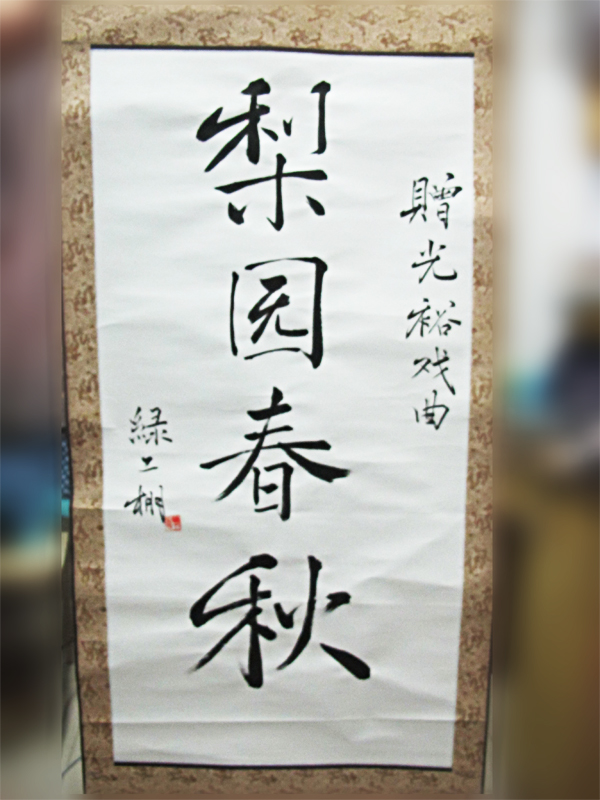 贈光裕戏曲
梨园春秋
緑工棚